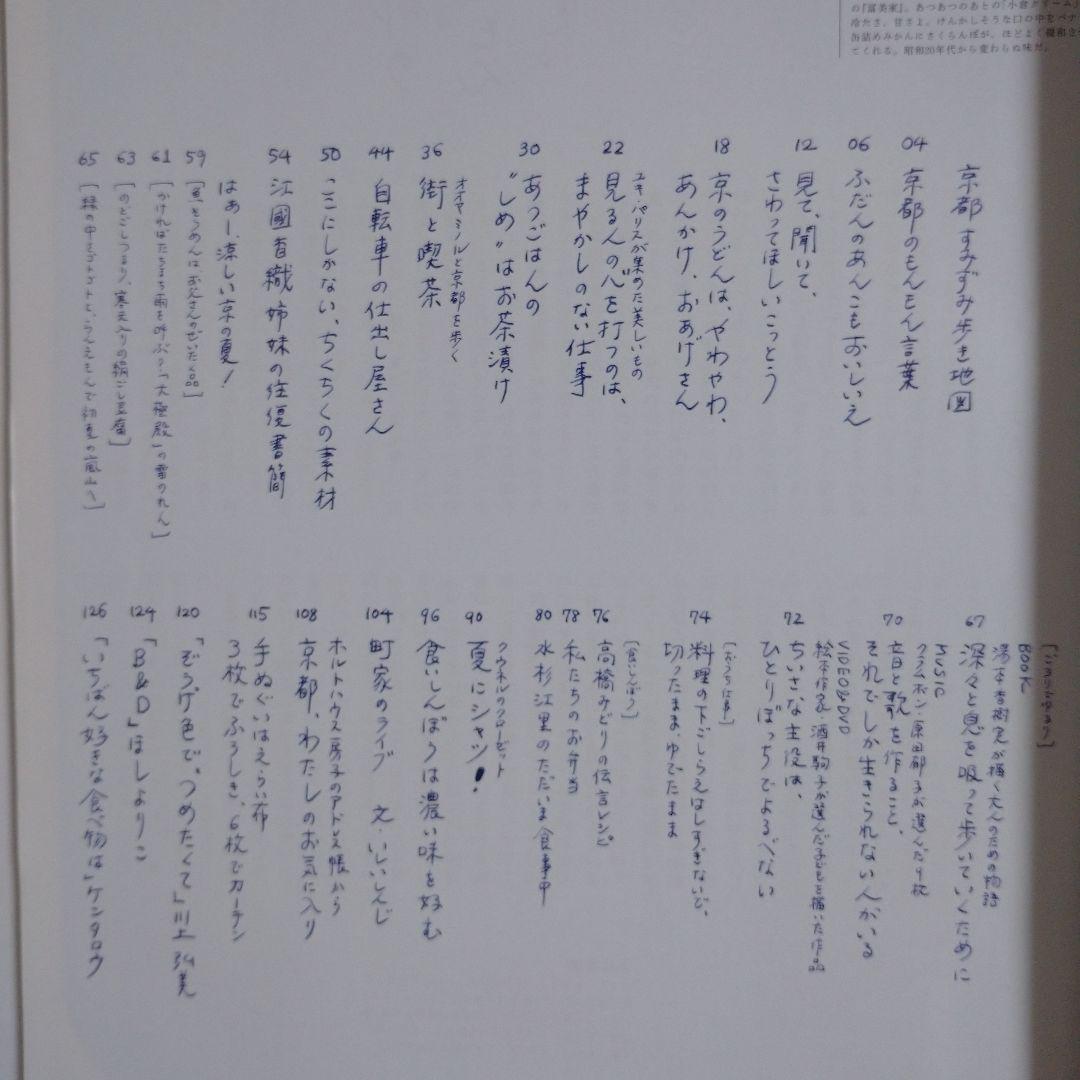 の『冨美家』。あつあつのあとの「小倉クリーム」
冷たさ、甘さよ。けんかしそうな口の中をバナ
缶詰めみかんにさくらんぼが、ほどよく緩和さ
てくれる。昭和20年代から変わらぬ味だ。
京都 すみずみ歩き地図
04 京都のもんもん言葉
06 ふだんのあんこもおいしいえ
12 見て、聞いて、
さわってほしいこっとう
18 京のうどんは、やわやわ、
あんかけ、おあげさん
ユキ・パリスが集めた美しいもの
22 見る人の心を打つのは、
まやかしのない仕事
30 あつごはんの
“しめ”はお茶漬け
オオヤミノルと京都を歩く
36 街と喫茶
44 自転車の仕出し屋さん
50 ここにしかない、ちくちくの素材
54 江國香織姉妹の往復書簡
はぁー、涼しい京の夏!
59 [魚そうめんは、お父さんのぜいたく品]
61 [かければたちまち雨を呼ぶ?「大極殿」の雪のれん]
63 [のどごしつるり、寒天入りの絹ごし豆腐]
65 [緑の中をゴトゴトと、らんでんで初夏の嵐山へ]
BOOK
湯本香樹実が描く大人のための物語
67 深々と息を吸って歩いていくために
MUSIC
クラムボン・原田郁子が選んだ9枚
70 音と歌を作ること、
それでしか生きられない人がいる
VIDEO&DVD
絵本作家・酒井駒子が選んだ子どもを描いた作品
72 ちいさな主役は、
ひとりぼっちでよるべない
[おうち仕事]
74 料理の下ごしらえはしすぎないで、
切ったまま、ゆでたまま
[食いしんぼう]
76 高橋みどりの伝言レシピ
78 私たちのお弁当
80 水杉江里のただいま食事中
クウネルのクローゼット
90 夏にシャツ!
96 食いしんぼうは濃い味を好む
104 町家のライブ 文・いしいしんじ
ホルトハウス房子のアドレス帳から
108 京都、わたしのお気に入り
115 手ぬぐいはえらい布
3枚でふろしき、6枚でカーテン
120 「ぞうげ色で、つめたくて」川上弘美
124 「B&D」ほしよりこ
126 「いちばん好きな食べ物は」ケンタロウ